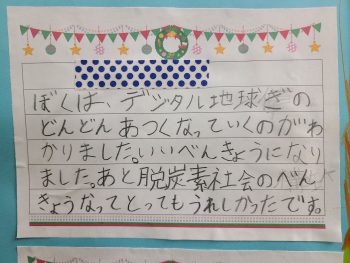 ぼくは、デジタル地球ぎの
どんどんあつくなっていくのがわ
かりました。いいべんきょうになり
ました。あと脱炭素社会のべん
きょうなってとってもうれしかったです。